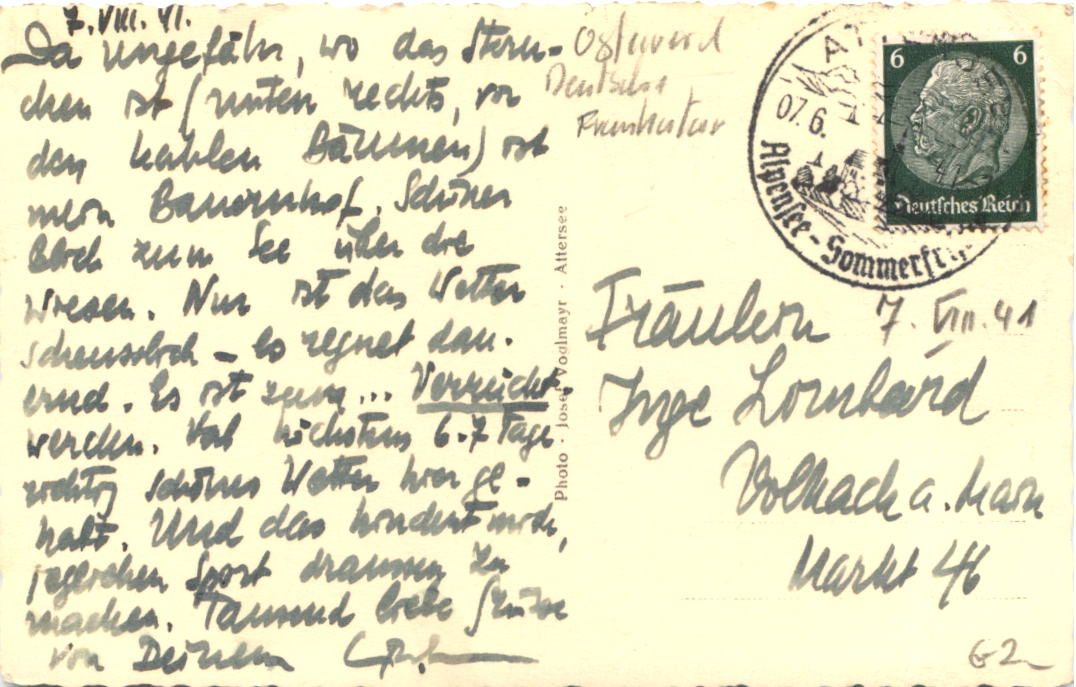 7. VIII. 41.
Da ungefähr, wo das Stern-
chen ist (unten rechts, vor
den kahlen Bäumen) ist
mein Bauernhof. Schöner
Blick zum See über die
Wiesen. Nur ist das Wetter
scheusslich – es regnet dau-
ernd. Es ist zum ... Verrückt
werden. Hab höchstens 6-7 Tage
richtig schönes Wetter hier ge-
habt. Und das hindert mich,
jeglichen Sport draussen zu
machen. Tausend liebe Grüsse
von Deinem
Ostmark
Deutsche
Photo · Josef Voglmayr · Attersee
07.6.
41
Alpensee-Sommerfr
6 6
Deutsches Reich
Fräulein 7. VIII. 41
Inge Lombard
Volkach a. Main
Markt 46
G2